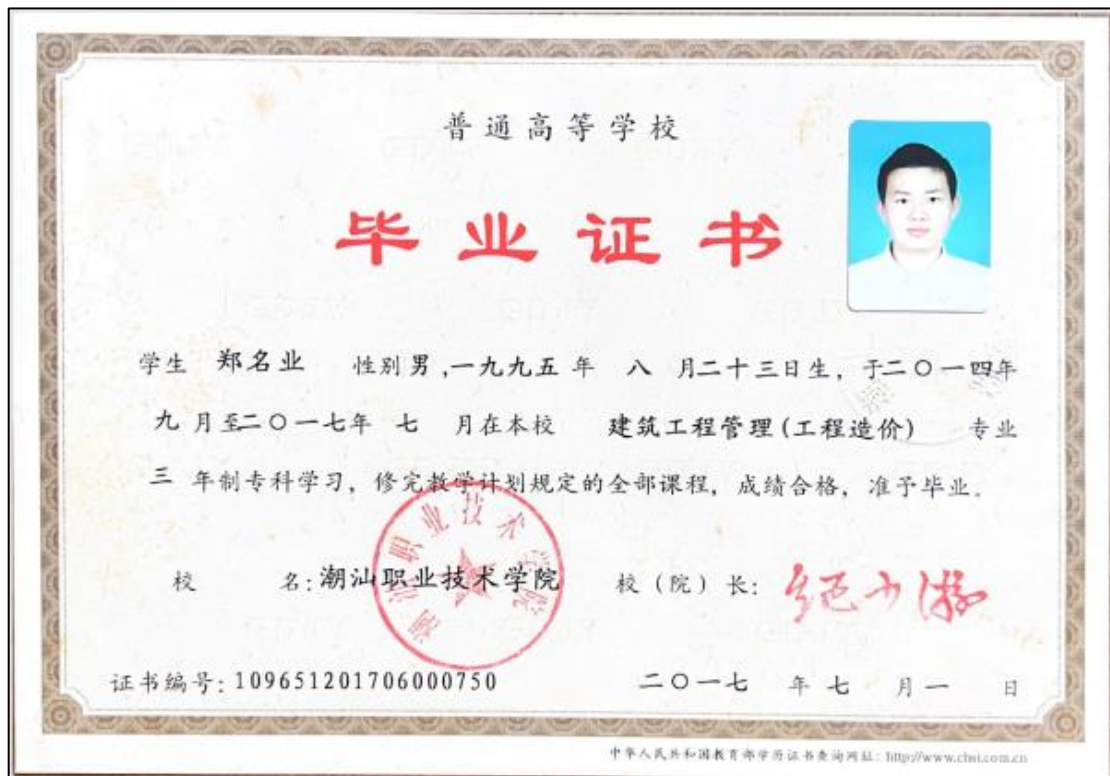 普通高等学校
毕业证书
学生 郑名业 性别 男,一九九五年 八 月二十三日生, 于二〇一四年
九 月至二〇一七年 七 月在本校 建筑工程管理(工程造价) 专业
三 年制专科学习, 修完教学计划规定的全部课程, 成绩合格, 准予毕业。
校 名: 潮汕职业技术学院 校(院)长:
潮汕职业技术学院
证书编号: 109651201706000750 二〇一七 年 七 月 一 日
中华人民共和国教育部学历证书查询网址: http://www.chsi.com.cn